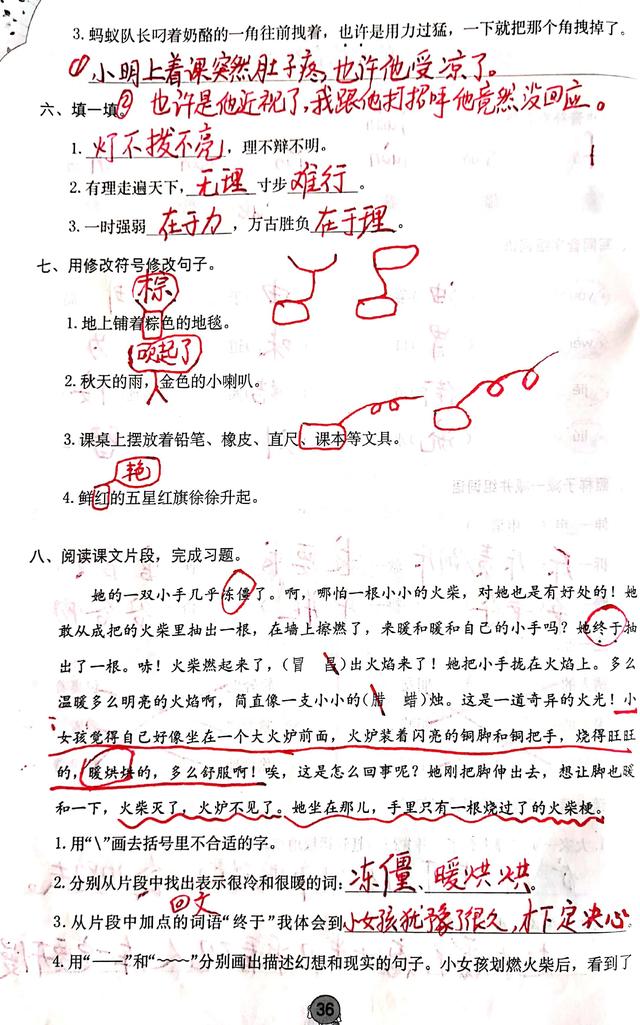 3. 蚂蚁队长叼着奶酪的一角往前拽着，也许是用力过猛，一下就把那个角拽掉了。
① 小明上着课突然肚子疼，也许他受凉了。
六、填一填。② 也许是他近视了，我跟他打招呼他竟然没回应。
1. 灯不拨不亮，理不辩不明。
2. 有理走遍天下，无理寸步难行。
3. 一时强弱在于力，万古胜负在于理。
七、用修改符号修改句子。
棕
1. 地上铺着粽色的地毯。
吹起了
2. 秋天的雨，金色的小喇叭。
3. 课桌上摆放着铅笔、橡皮、直尺、课本等文具。
艳
4. 鲜红的五星红旗徐徐升起。
八、阅读课文片段，完成习题。
她的一双小手几乎冻僵了。啊，哪怕一根小小的火柴，对她也是有好处的！她
敢从成把的火柴里抽出一根，在墙上擦燃了，来暖和暖和自己的小手吗？她终于抽
出了一根。哧！火柴燃起来了，（冒 昌）出火焰来了！她把小手拢在火焰上。多么
温暖多么明亮的火焰啊，简直像一支小小的（腊 蜡）烛。这是一道奇异的火光！小
女孩觉得自己好像坐在一个大火炉前面，火炉装着闪亮的铜脚和铜把手，烧得旺旺
的，暖烘烘的，多么舒服啊！唉，这是怎么回事呢？她刚把脚伸出去，想让脚也暖
和一下，火柴灭了，火炉不见了。她坐在那儿，手里只有一根烧过了的火柴梗。
1. 用“\”画去括号里不合适的字。
2. 分别从片段中找出表示很冷和很暖的词：冻僵、暖烘烘。
回文
3. 从片段中加点的词语“终于”我体会到小女孩犹豫了很久，才下定决心。
4. 用“——”和“﹏﹏”分别画出描述幻想和现实的句子。小女孩划燃火柴后，看到了
36